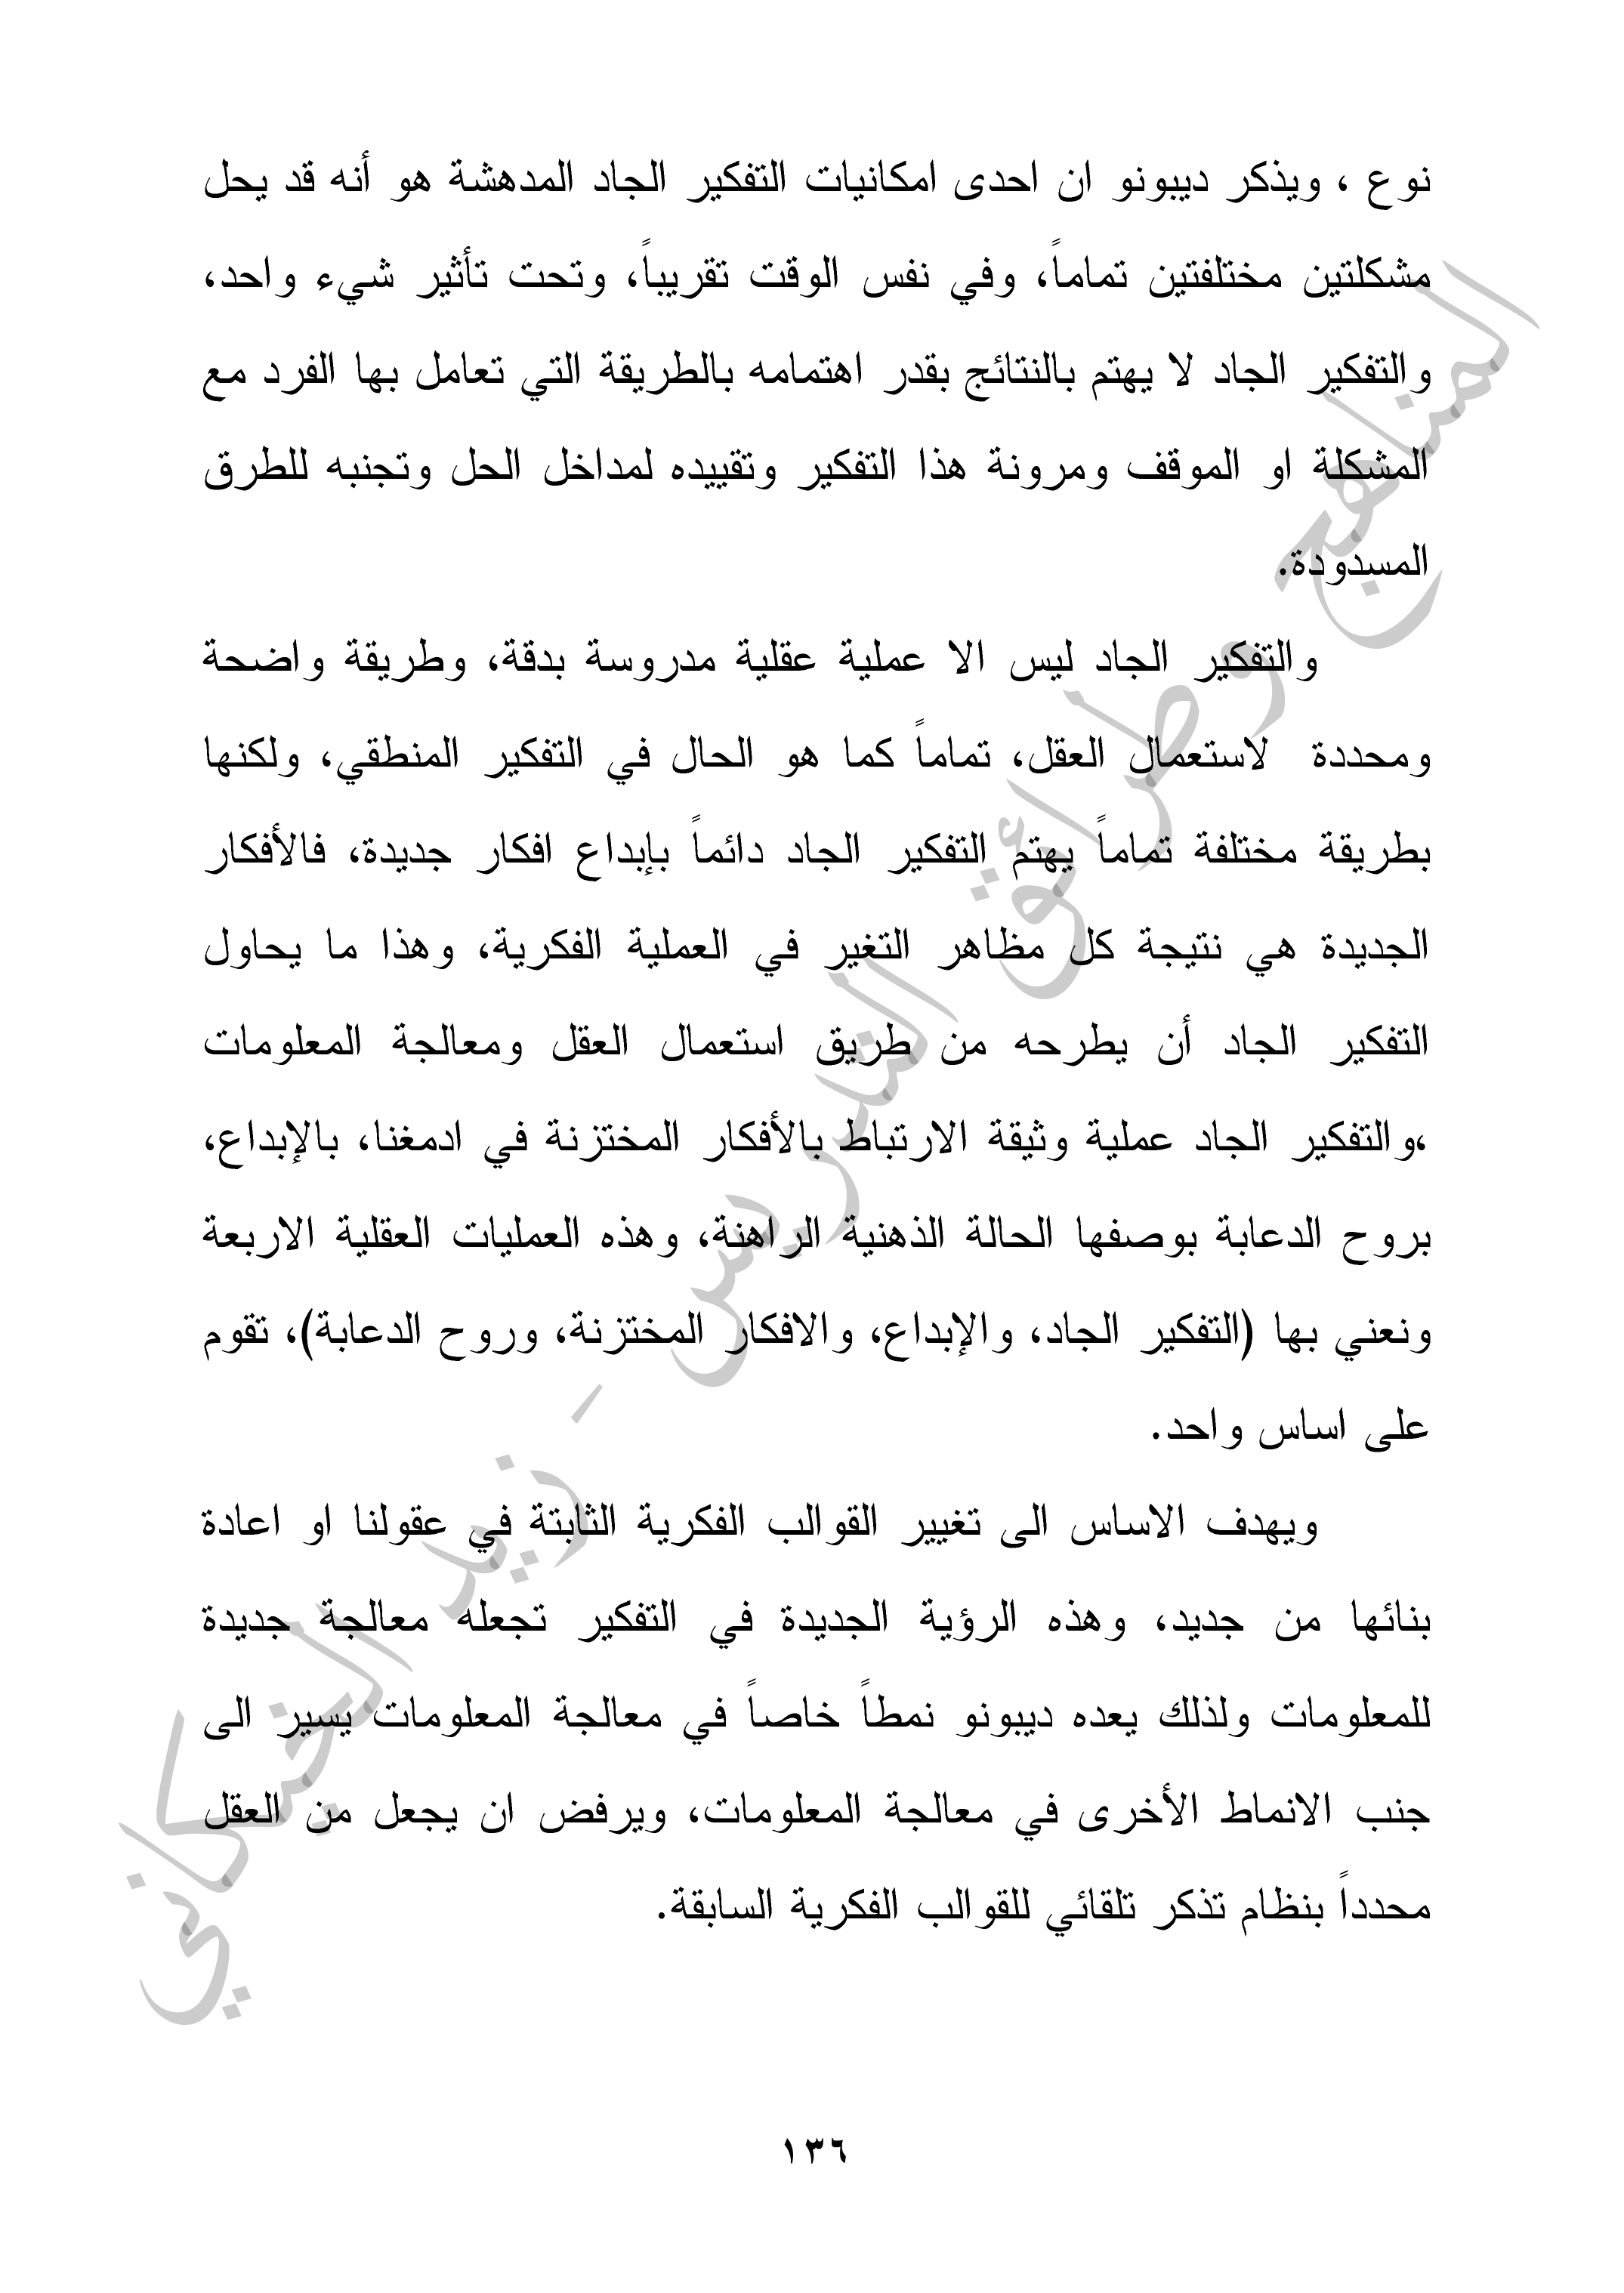 نوع ، ويذكر ديبونو ان احدى امكانيات التفكير الجاد المدهشة هو أنه قد يحل
مشكلتين مختلفتين تماماً، وفي نفس الوقت تقريباً، وتحت تأثير شيء واحد،
والتفكير الجاد لا يهتم بالنتائج بقدر اهتمامه بالطريقة التي تعامل بها الفرد مع
المشكلة او الموقف ومرونة هذا التفكير وتقييده لمداخل الحل وتجنبه للطرق
المسدودة.
والتفكير الجاد ليس الا عملية عقلية مدروسة بدقة، وطريقة واضحة
ومحددة لاستعمال العقل، تماماً كما هو الحال في التفكير المنطقي، ولكنها
بطريقة مختلفة تماماً يهتم التفكير الجاد دائماً بإبداع افكار جديدة، فالأفكار
الجديدة هي نتيجة كل مظاهر التغير في العملية الفكرية، وهذا ما يحاول
التفكير الجاد أن يطرحه من طريق استعمال العقل ومعالجة المعلومات
،والتفكير الجاد عملية وثيقة الارتباط بالأفكار المختزنة في ادمغنا، بالإبداع،
بروح الدعابة بوصفها الحالة الذهنية الراهنة، وهذه العمليات العقلية الاربعة
ونعني بها (التفكير الجاد، والإبداع، والافكار المختزنة، وروح الدعابة)، تقوم
على اساس واحد.
ويهدف الاساس الى تغيير القوالب الفكرية الثابتة في عقولنا او اعادة
بنائها من جديد، وهذه الرؤية الجديدة في التفكير تجعله معالجة جديدة
للمعلومات ولذلك يعده ديبونو نمطاً خاصاً في معالجة المعلومات يسير الى
جنب الانماط الأخرى في معالجة المعلومات، ويرفض ان يجعل من العقل
محدداً بنظام تذكر تلقائي للقوالب الفكرية السابقة.
المناهج وطرائق التدريس - زيد الخيكاني
١٣٦